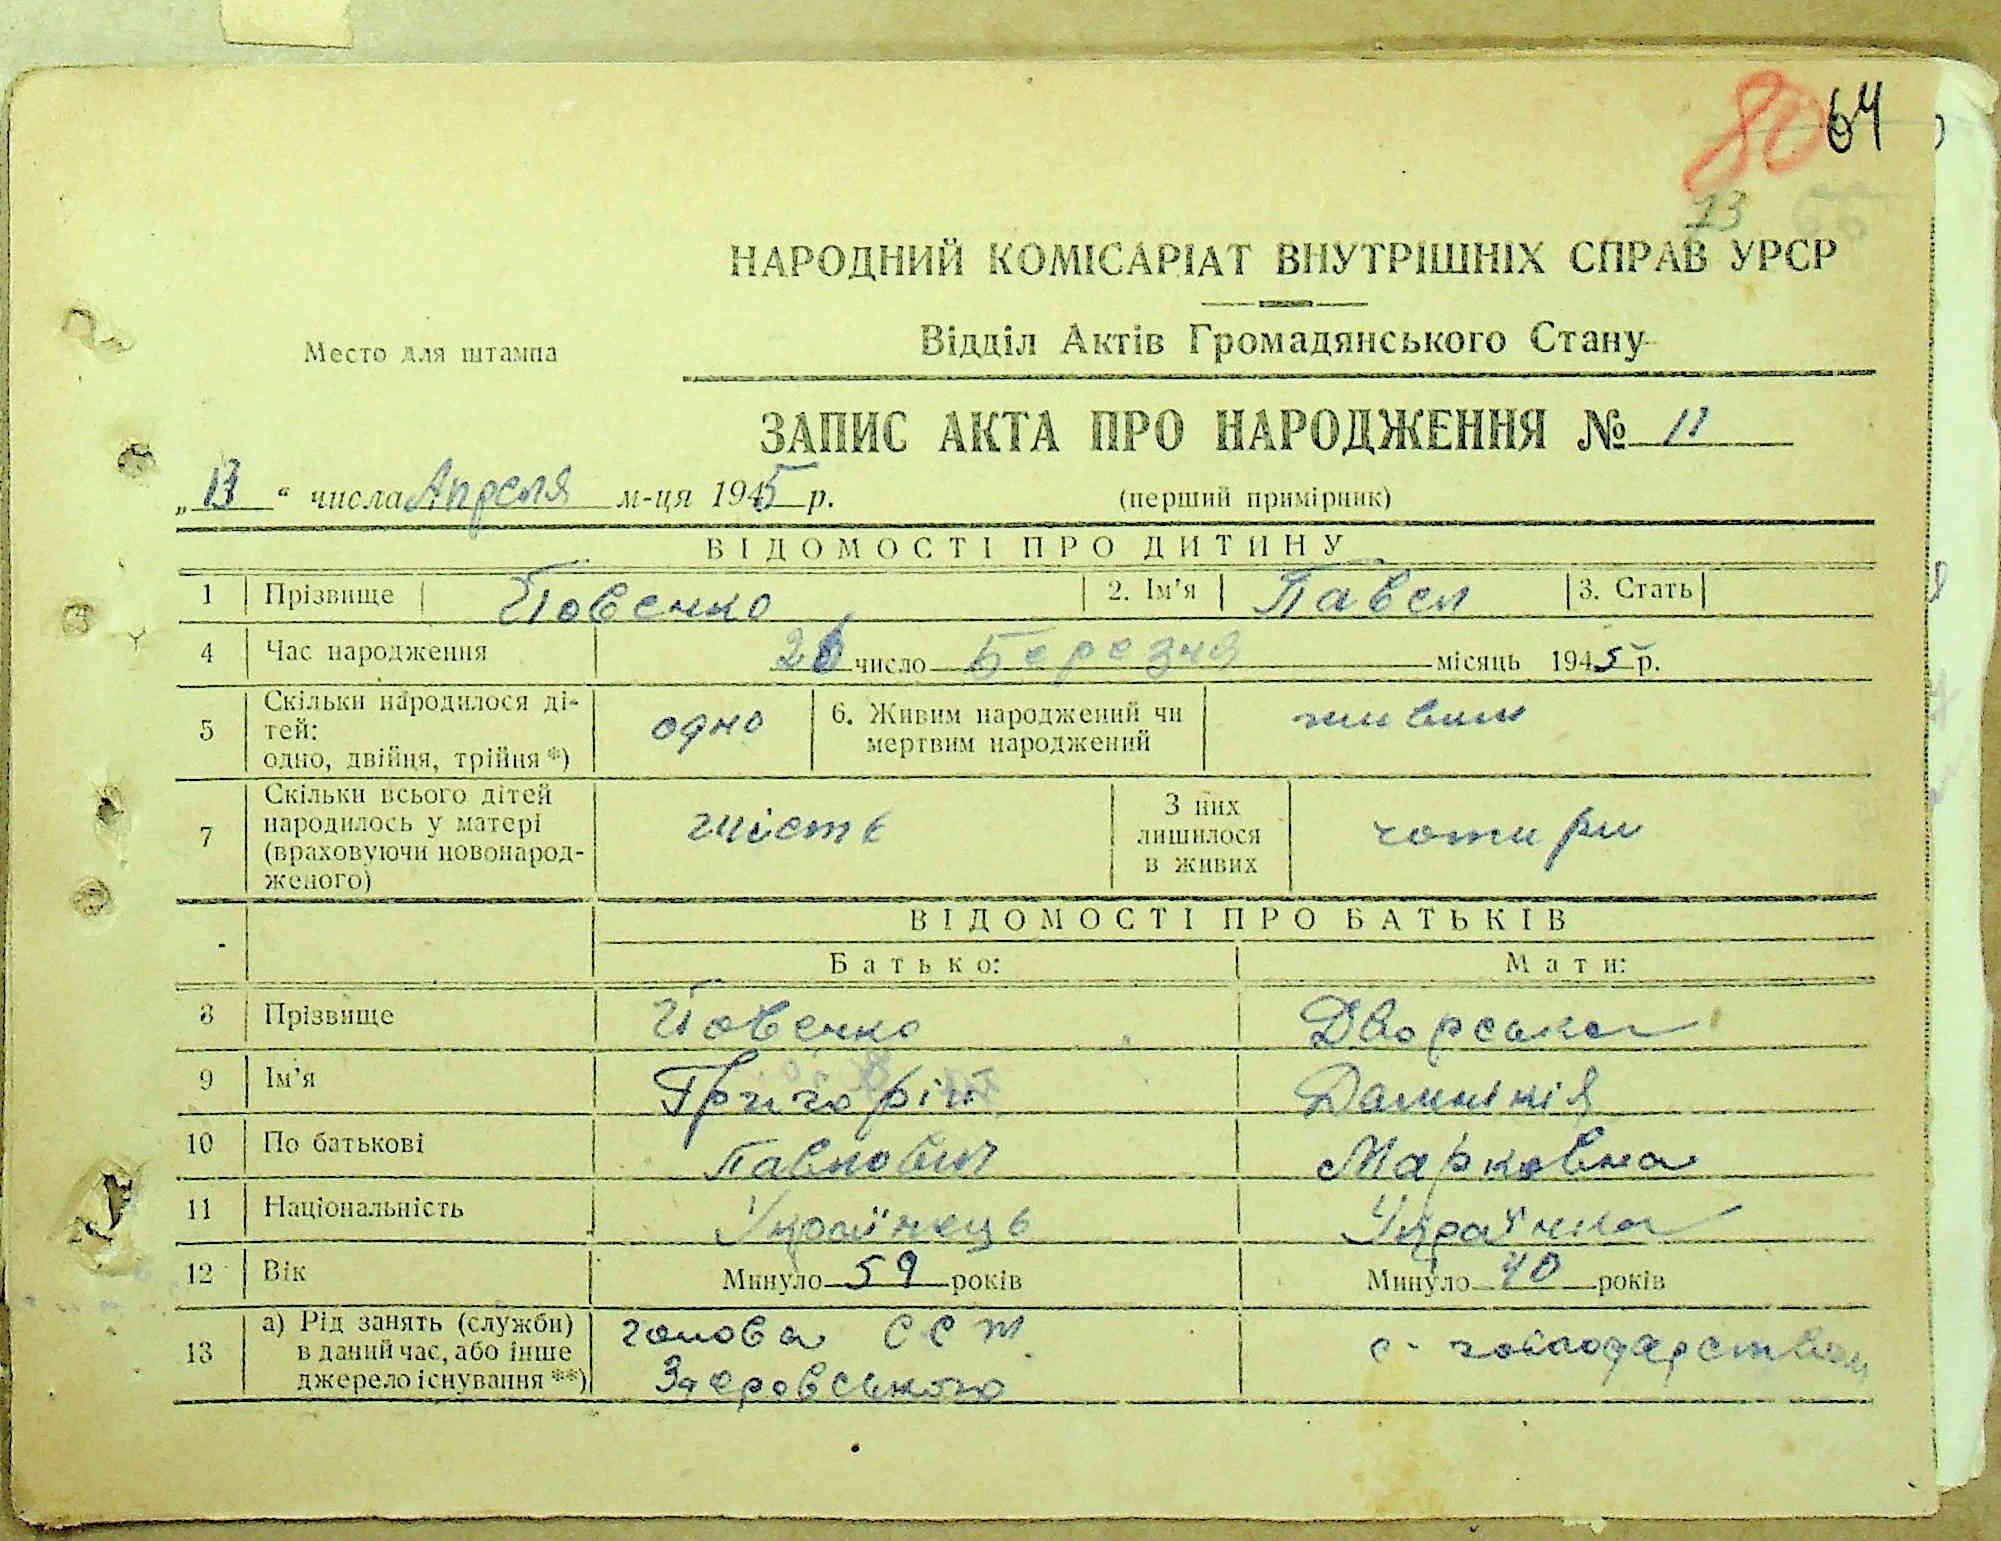 80 64
13
НАРОДНИЙ КОМІСАРІАТ ВНУТРІШНІХ СПРАВ УРСР
Место для штампа
Відділ Актів Громадянського Стану
ЗАПИС АКТА ПРО НАРОДЖЕННЯ № 11
„13“ числа Апреля м-ця 1945 р. (перший примірник)
ВІДОМОСТІ ПРО ДИТИНУ
1 Прізвище Повенко 2. Ім'я Павел 3. Стать
4 Час народження 26 число Березня місяць 1945 р.
5 Скільки народилося ді-
тей:
одно, двійця, трійця*) одно 6. Живим народжений чи
мертвим народжений живим
7 Скільки всього дітей
народилось у матері
(враховуючи новонарод-
женого) шість З них
лишилося
в живих чотири
ВІДОМОСТІ ПРО БАТЬКІВ
Батько: Мати:
8 Прізвище Повенко Дворська
9 Ім'я Григорій Домнікія
10 По батькові Павлович Марковна
11 Національність Українець Українка
12 Вік Минуло 59 років Минуло 40 років
13 а) Рід занять (служби)
в даний час, або інше
джерело існування**) голова ССТ
с. господарством